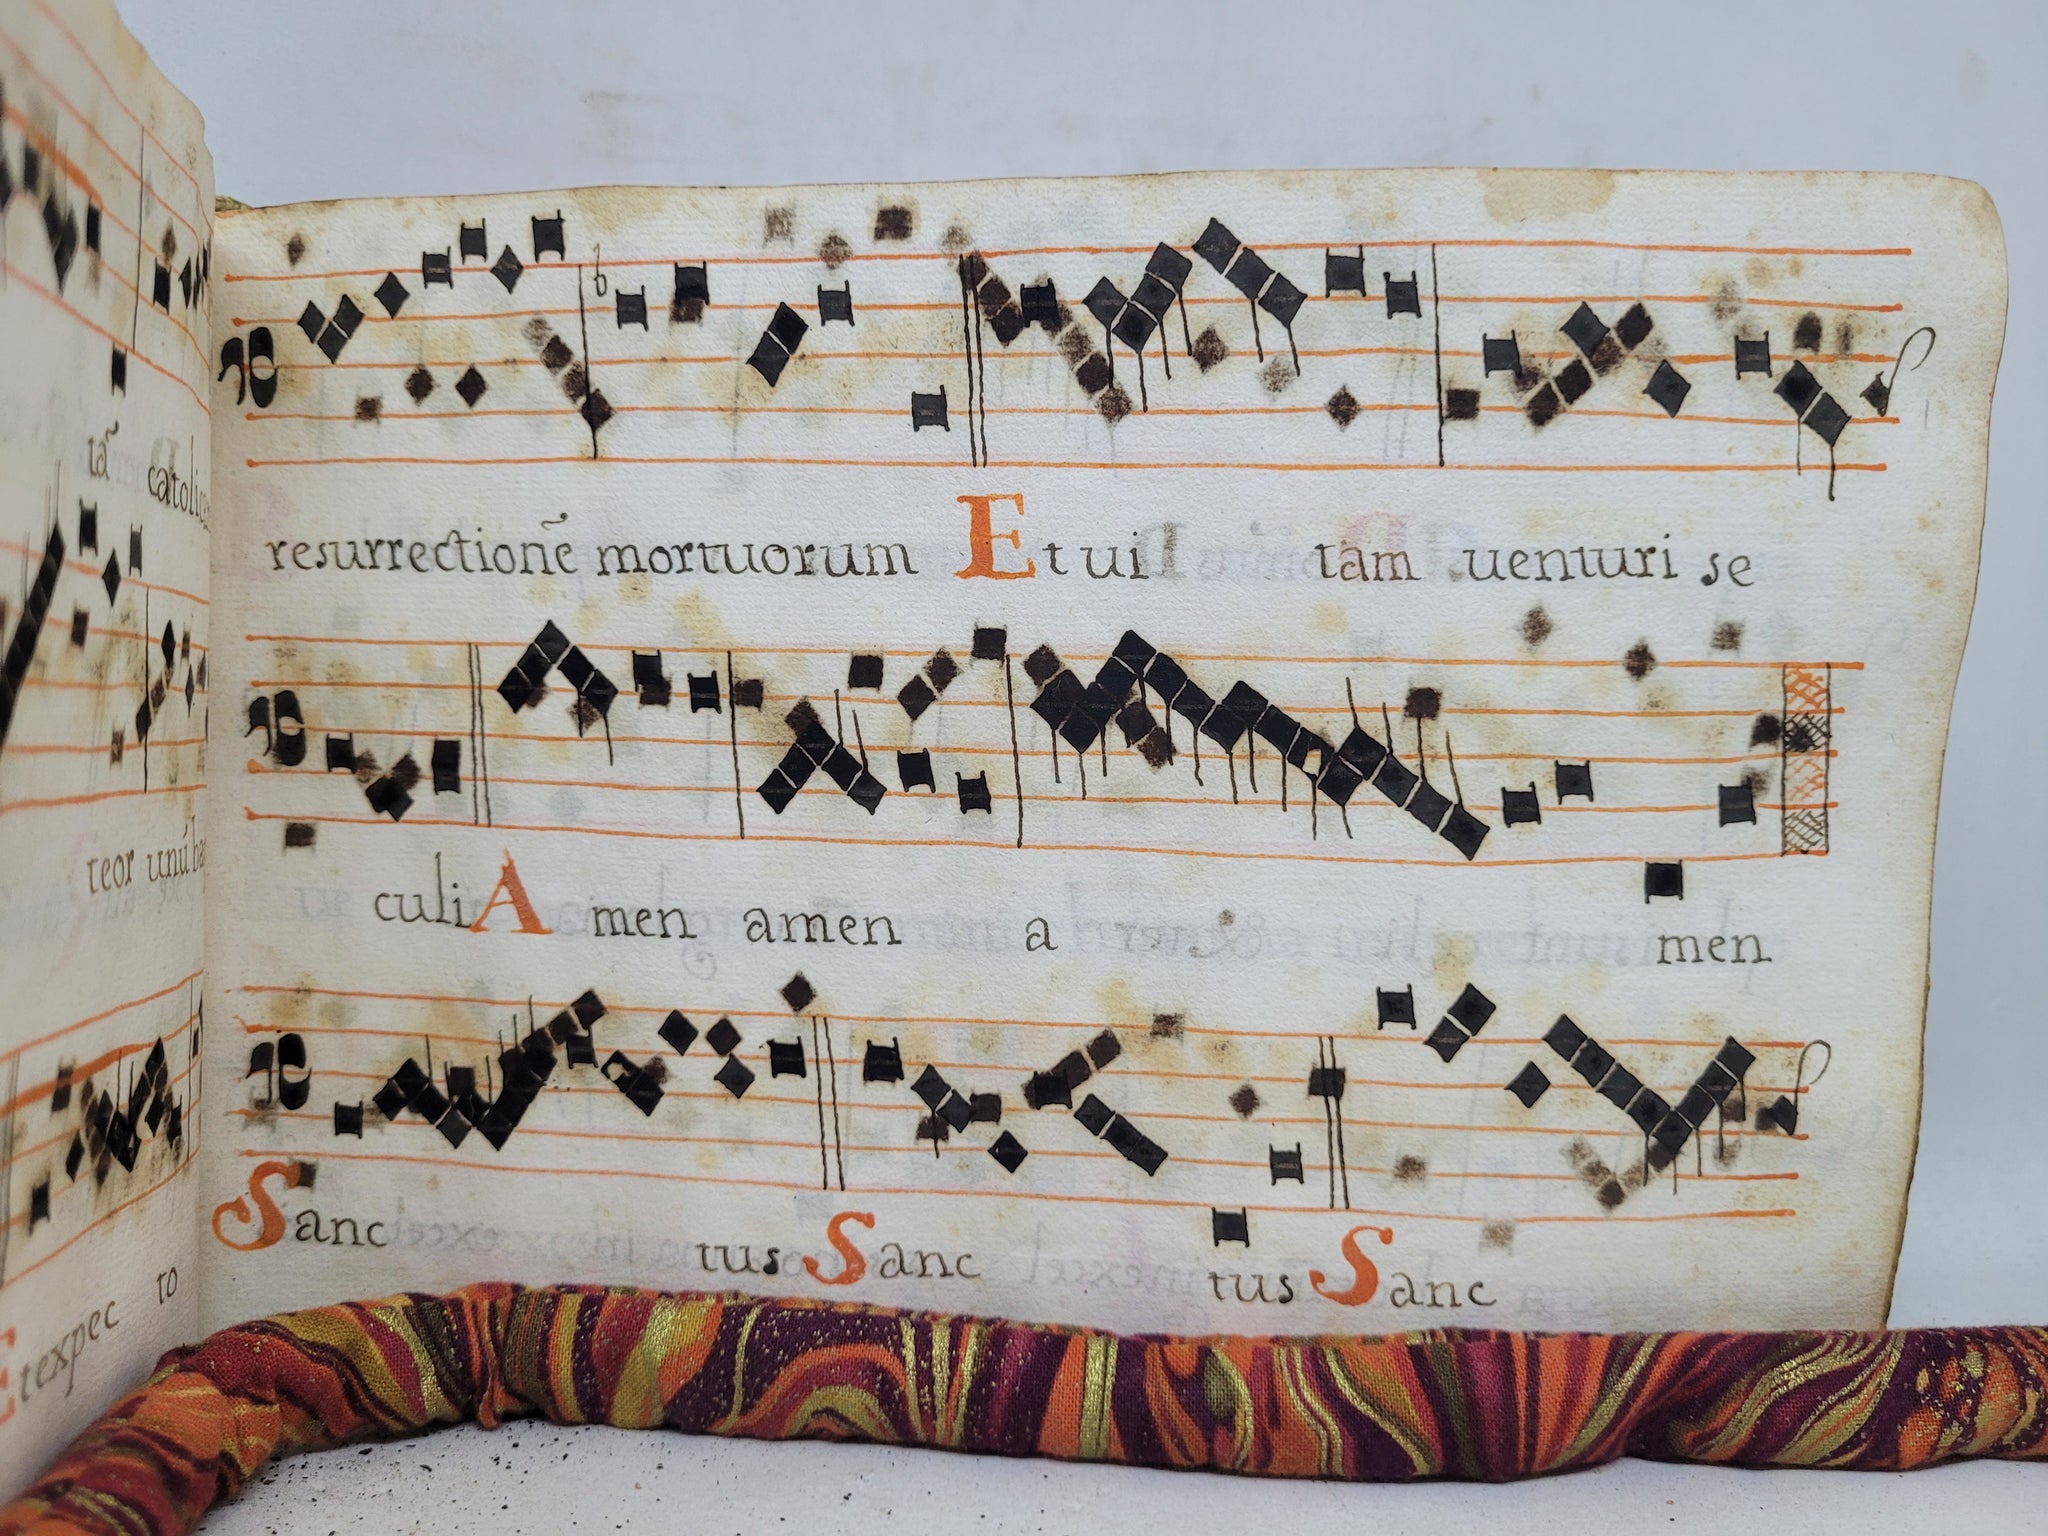 tã catolic
teor unú ba
Etexpec to
resurrectionẽ mortuorum Et ui tam uenturi se
culi Amen amen a men
Sanc tus Sanc tus Sanc